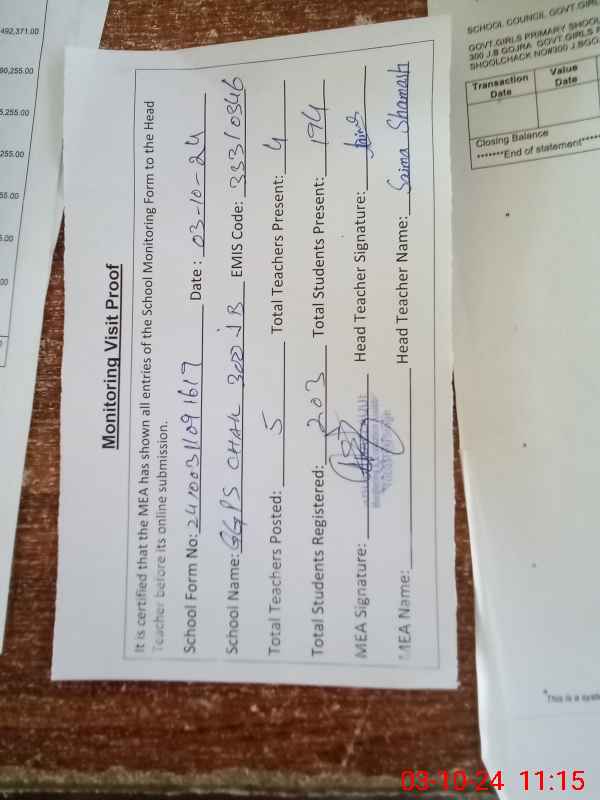 Monitoring Visit Proof
It is certified that the MEA has shown all entries of the School Monitoring Form to the Head
Teacher before its online submission.
School Form No: 24100311091617 Date : 03-10-24
School Name: GGPS CHAK 300 JB EMIS Code: 33310346
Total Teachers Posted: 5 Total Teachers Present: 4
Total Students Registered: 203 Total Students Present: 194
MEA Signature: Head Teacher Signature: Saima
MEA Name: Head Teacher Name: Saima Shamash
SCHOOL COUNCIL GOVT.GIRL
GOVT.GIRLS PRIMARY SHOOL
300 J.B GOJRA GOVT.GIRLS P
SHOOLCHACK NO#300 J.BGO
Transaction Date Value Date
Closing Balance
*******End of statement*****
*This is a syste
492,371.00
255.00
03-10-24 11:15